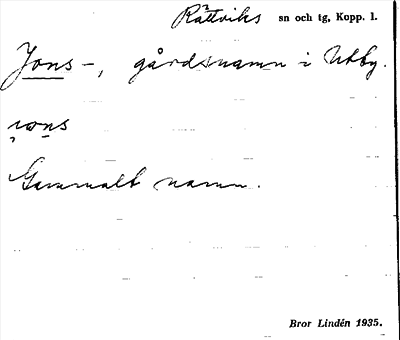 Rättviks sn och tg, Kopp. l.
Jons-, gårdsnamn i Utby.
Gammalt namn.
Bror Lindén 1935.